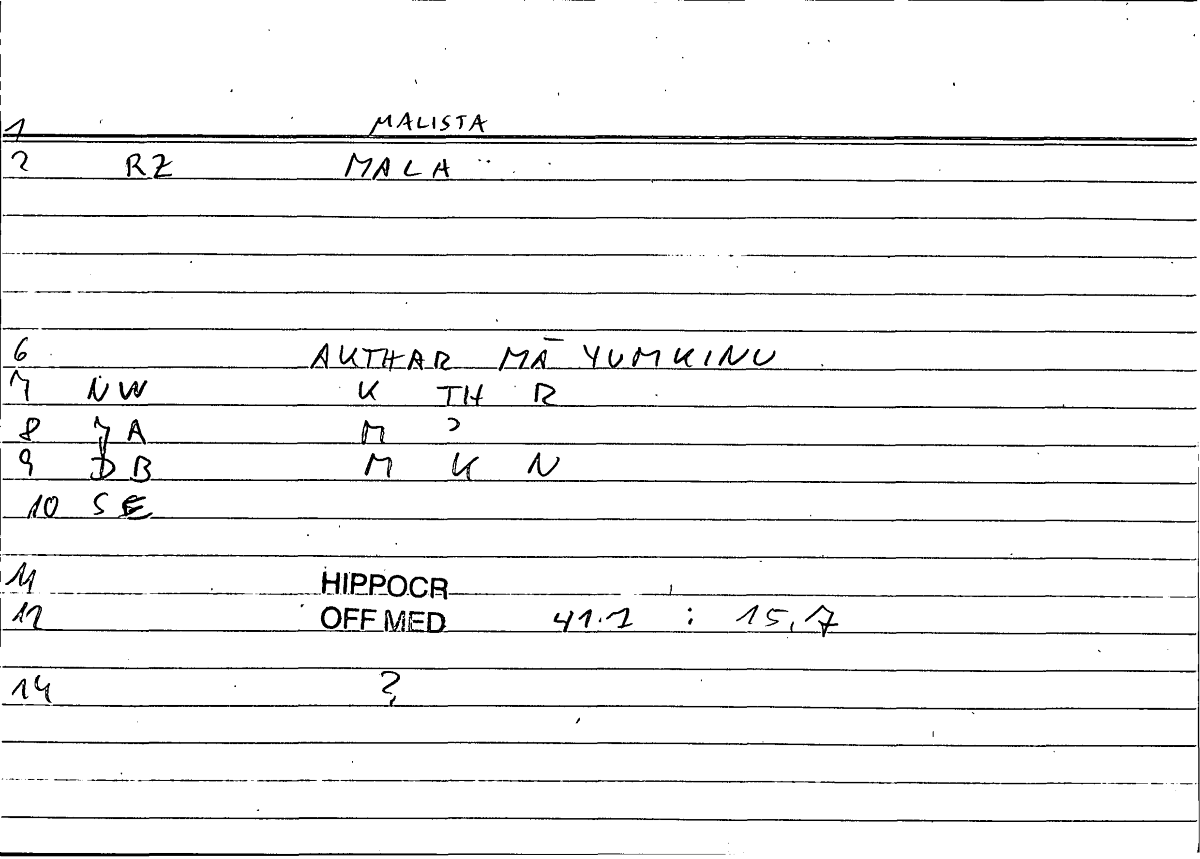 1 MALISTA
2 RZ MALA ¨
6 AKTHAR MĀ YUMKINU
7 NW K TH R
8 JA M ʾ
9 DB M K N
10 SE
11 HIPPOCR
12 OFF MED 41.1 : 15,7
14 ?